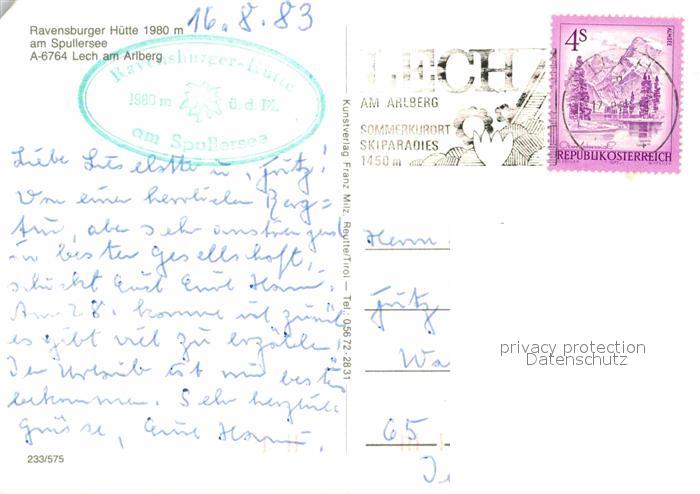 16.8.83
Ravensburger Hütte 1980 m
am Spullersee
A-6764 Lech am Arlberg
Ravensburger-Hütte
1980 m ü. d. M.
am Spullersee
LECH
AM ARLBERG
SOMMERKURORT
SKIPARADIES
1450 m
4S
ALMSEE
REPUBLIK ÖSTERREICH
Liebe Liselotte u. Fritz!
Von einer herrlichen Berg=
tour, aber sehr anstrengend
in bester Gesellschaft,
schickt Euch Eure Hanni.
Am 28. komme ich zurück
es gibt viel zu erzählen!
Der Urlaub ist mir bestens
bekommen. Sehr herzliche
Grüsse, Eure Hanni.
233/575
Kunstverlag Franz Milz, Reutte/Tirol — Tel. 05672-2831
Herrn
Fritz
Wa
65
privacy protection
Datenschutz